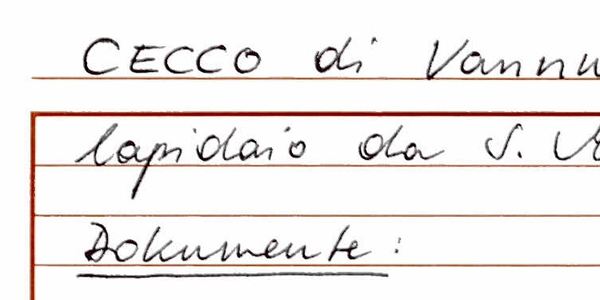 CECCO di Vannu
lapidaio da S.
Dokumente: